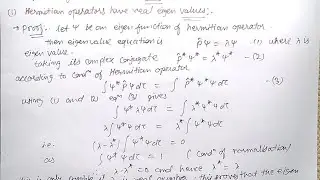 (1) Hermitian operators have real eigen values:
→ Proof:- Let Ψ be an eigen function of hermitian operator
then eigenvalue equation is P̂Ψ = λΨ (1) where λ is
eigen value.
taking its complex conjugate P̂*Ψ* = λ*Ψ* —(2)
according to Condⁿ of Hermitian operator
∫Ψ* P̂Ψ dτ = ∫Ψ P̂*Ψ* dτ —(3)
using (1) and (2) eqⁿ (3) gives
∫Ψ* λΨ dτ = ∫Ψ λ*Ψ* dτ
λ∫Ψ*Ψ dτ = λ*∫Ψ*Ψ dτ
i.e. (λ-λ*)∫Ψ*Ψ dτ = 0
as ∫Ψ*Ψ dτ = 1 { Condⁿ of normalisation
λ-λ* = 0 and hence λ* = λ
is only possible if λ is real number. This proves that the eigen